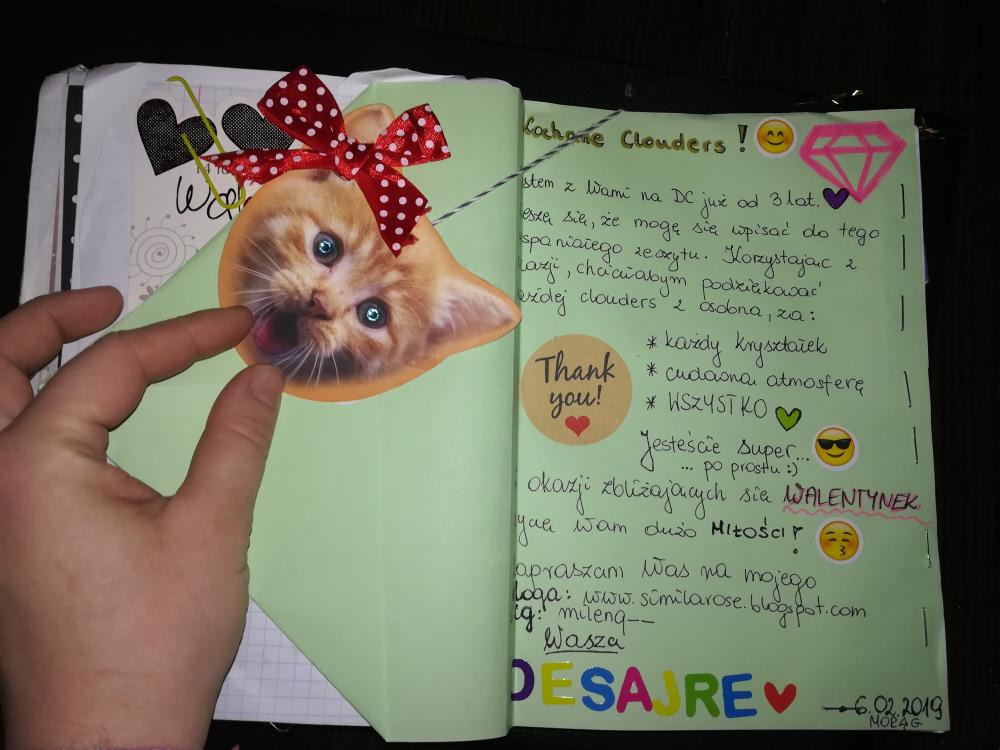 Kochane Clouders!
stem z Wami na DC już od 3 lat.
eszę się, że mogę się wpisać do tego
spaniałego zeszytu. Korzystając z
kazji, chciałabym podziękować
ażdej clouders z osobna, za:
* każdy kryształek
* cudowna atmosferę
* WSZYSTKO
Thank
you!
Jesteście super...
... po prostu :)
okazji zbliżających się WALENTYNEK
yczę Wam dużo Miłości!
apraszam Was na mojego
loga: www.similarose.blogspot.com
ig: milenq__
Wasza
DESAJRE
6.02.2019
MORĄG